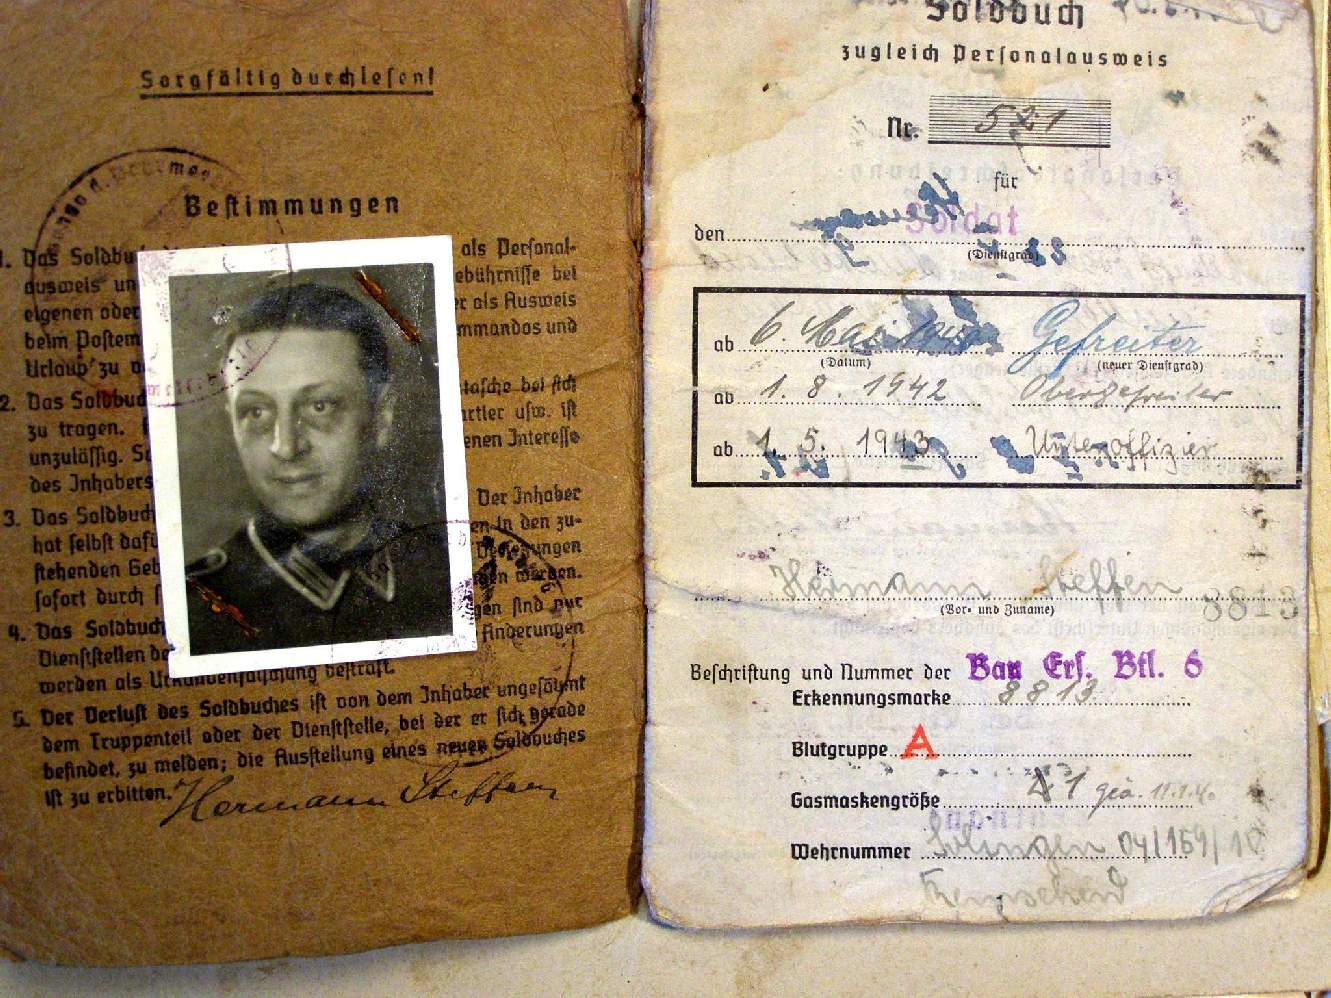 Sorgfältig durchlesen!
Bestimmungen
1. Das Soldbuch als Personal-
ausweis un ebührnisse bei
eigenen oder r als Ausweis
beim Postem mmandos und
Urlaub zu
2. Das Soldbuch tasche bei sich
zu tragen. rtler usw. ist
unzulässig. enen Interesse
des Inhabers
3. Das Soldbuch Der Inhaber
hat selbst dafü en in den zu-
stehenden Geb
sofort durch en werden.
4. Das Soldbuch gen sind nur
Dienststellen de Änderungen
werden als Urkundenfälschung bestraft.
5. Der Verlust des Soldbuches ist von dem Inhaber ungesäumt
dem Truppenteil oder der Dienststelle, bei der er sich gerade
befindet, zu melden; die Ausstellung eines neuen Soldbuches
ist zu erbitten.
Hermann Steffen
Soldbuch
zugleich Personalausweis
Nr. 521
für
den Soldat
(Dienstgrad)
ab 6. Mai 1940 Gefreiter
(Datum) (neuer Dienstgrad)
ab 1. 8. 1942 Obergefreiter
ab 1. 5. 1943 Unteroffizier
Hermann Steffen
(Vor- und Zuname)
8813
Beschriftung und Nummer der Bau Ers. Btl. 6
Erkennungsmarke 8813
Blutgruppe A
Gasmaskengröße 1
Wehrnummer Solingen 04/159/10
Remscheid